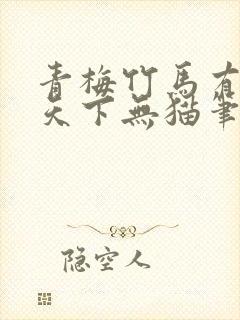 青梅竹馬有
天下無貓筆
隐空人